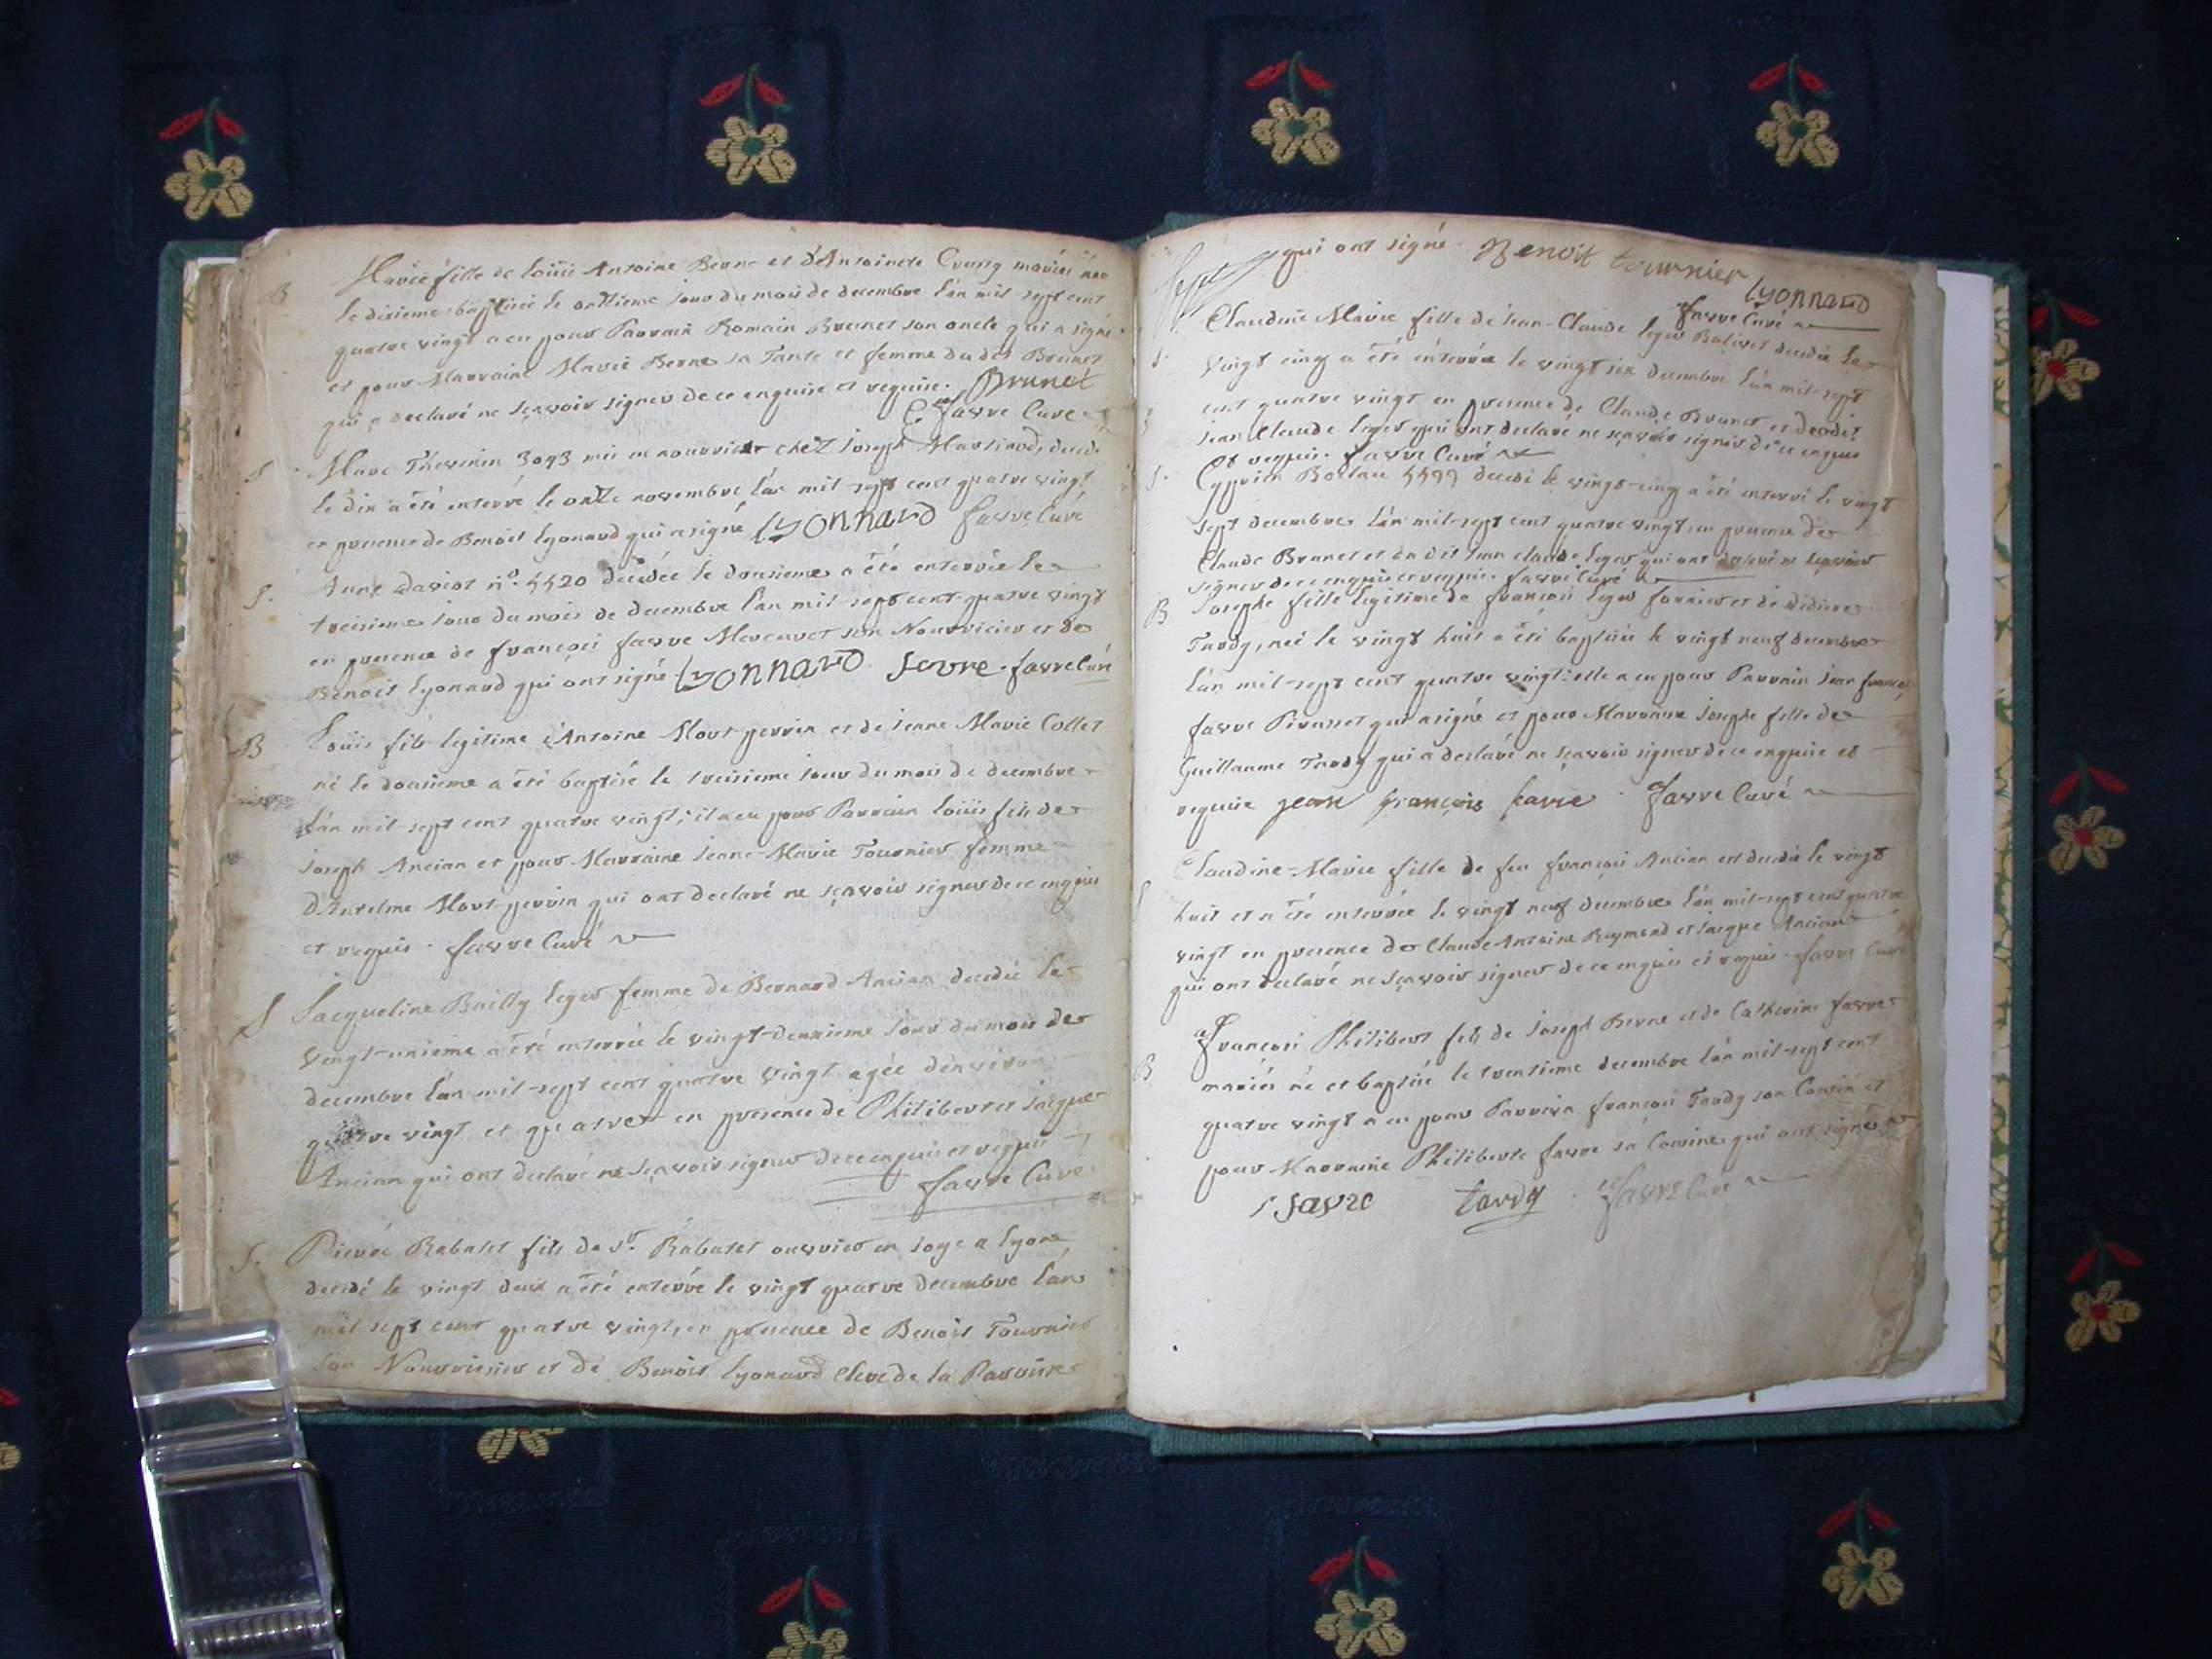 B Marie fille de Loüis Antoine Berne et d'Antoinete mariés née
le dixieme baptisée le onzieme jour du mois de decembre l'an mil-sept cent
quatre vingt a eu pour Parrain Romain Brunet son oncle qui a signé
et pour Marraine Marie Berne sa Tante et femme du dit Brunet
qui a declaré ne sçavoir signer de ce enquise et requise. Brunet
favre Curé
S. Marc Thevenin 3093 mis en nourrice chez Joseph decedé
le dix a été enterré le onze novembre l'an mil-sept cent quatre vingt
en presence de Benoit Lyonard qui a signé Lyonnard favre Curé
S. Anne Daviot n°. 5520 decedée le douzieme a été enterrée le
treizieme jour du mois de decembre l'an mil-sept cent quatre vingt
en presence de françois favre son Nourricier et de
Benoit Lyonard qui ont signé Lyonnard favre favre Curé
B Loüis fils legitime d'Antoine Mont-perrin et de Jeanne Marie Collet
né le douzieme a été baptisé le treizieme jour du mois de decembre
l'an mil-sept cent quatre vingt; il a eu pour Parrain Loüis fils de
Joseph Ancian et pour Marraine Jeanne-Marie Tournier femme
d'Antelme Mont-perrin qui ont declaré ne sçavoir signer de ce enquis
et requis. favre Curé
S Jacqueline Bailly Leger femme de Bernard Ancian decedée le
vingt-unieme a été enterrée le vingt-deuxieme jour du mois de
decembre l'an mil-sept cent quatre vingt agée d'environ
quatre vingt et quatre en presence de Philibert et Jacque
Ancian qui ont declaré ne sçavoir signer de ce enquis et requis
favre Curé
S. Pierre Rabatet fils de Sr. Rabatet ouvrier en soye a Lyon
decedé le vingt deux a été enterré le vingt quatre decembre l'an
mil sept cent quatre vingt, en presence de Benoit Tournier
son Nourricier et de Benoit Lyonard Clerc de la Paroisse
qui ont signé. Benoit tournier
Lyonnard
favre Curé
S. Claudine Marie fille de Jean-Claude Leger Balivet decedée le
vingt cinq a été enterrée le vingt six decembre l'an mil-sept
cent quatre vingt en presence de Claude Brunet et du dit
Jean Claude Leger qui ont declaré ne sçavoir signer de ce enquis
et requis. favre Curé
S. Cyprien 5599 decedé le vingt-cinq a été enterré le vingt
sept decembre l'an mil-sept cent quatre vingt en presence de
Claude Brunet et du dit Jean claude Leger qui ont declaré ne sçavoir
signer de ce enquis et requis. favre Curé
B Josephe fille legitime de françois Leger fournier et de Didiere
Tardy, née le vingt huit a été baptisée le vingt neuf decembre
l'an mil-sept cent quatre vingt: elle a eu pour Parrain Jean françois
favre qui a signé et pour Marraine Josephe fille de
Guillaume Tardy qui a declaré ne sçavoir signer de ce enquise et
requise jean françois favre. favre Curé
S Claudine-Marie fille de feu françois Ancian est decedée le vingt
huit et a été enterrée le vingt neuf decembre l'an mil-sept cent quatre
vingt en presence de Claude Antoine Raymond et Jacque Ancian
qui ont declaré ne sçavoir signer de ce enquis et requis. favre Curé
B françois Philibert fils de Joseph Berne et de Catherine favre
mariés né et baptisé le trentieme decembre l'an mil-sept cent
quatre vingt a eu pour Parrain françois Tardy son Cousin et
pour Marraine Philiberte favre sa Cousine qui ont signés
favre tardy favre Curé